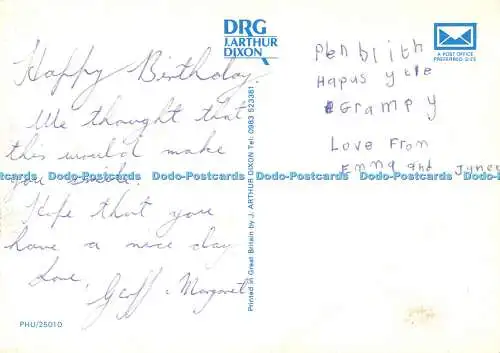 Happy Birthday.
We thought that
this would make
you smile.
Hope that you
have a nice day
Love,
Geoff & Margaret
PHU/25010
DRG
J.ARTHUR
DIXON
Printed in Great Britain by J. ARTHUR DIXON Tel: 0983 523381
A POST OFFICE
PREFERRED SIZE
Penblith
Hapus
Grampy
Love From
Emma and James
Dodo-Postcards Dodo-Postcards Dodo-Postcards Dodo-Postcards Dodo-Postcards